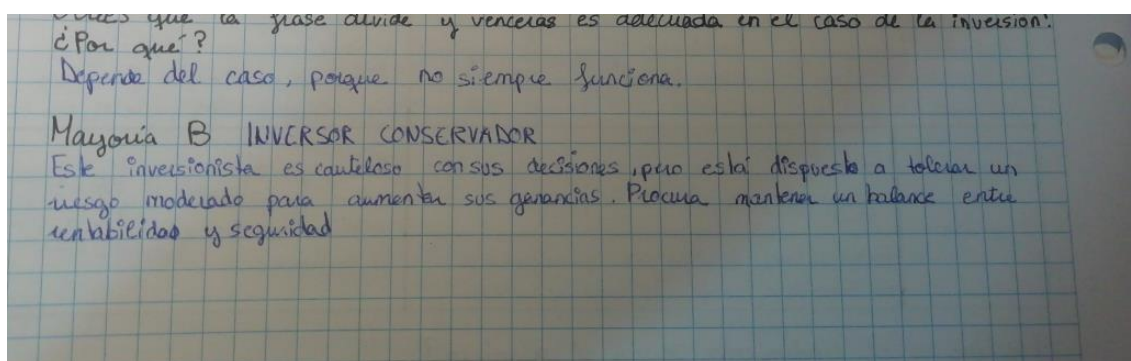 que la frase divide y venceras es adecuada en el caso de la inversion?
¿Por qué?
Depende del caso, porque no siempre funciona.
Mayoría B INVERSOR CONSERVADOR
Este inversionista es cauteloso con sus decisiones, pero está dispuesto a tolerar un
riesgo moderado para aumentar sus ganancias. Procura mantener un balance entre
rentabilidad y seguridad